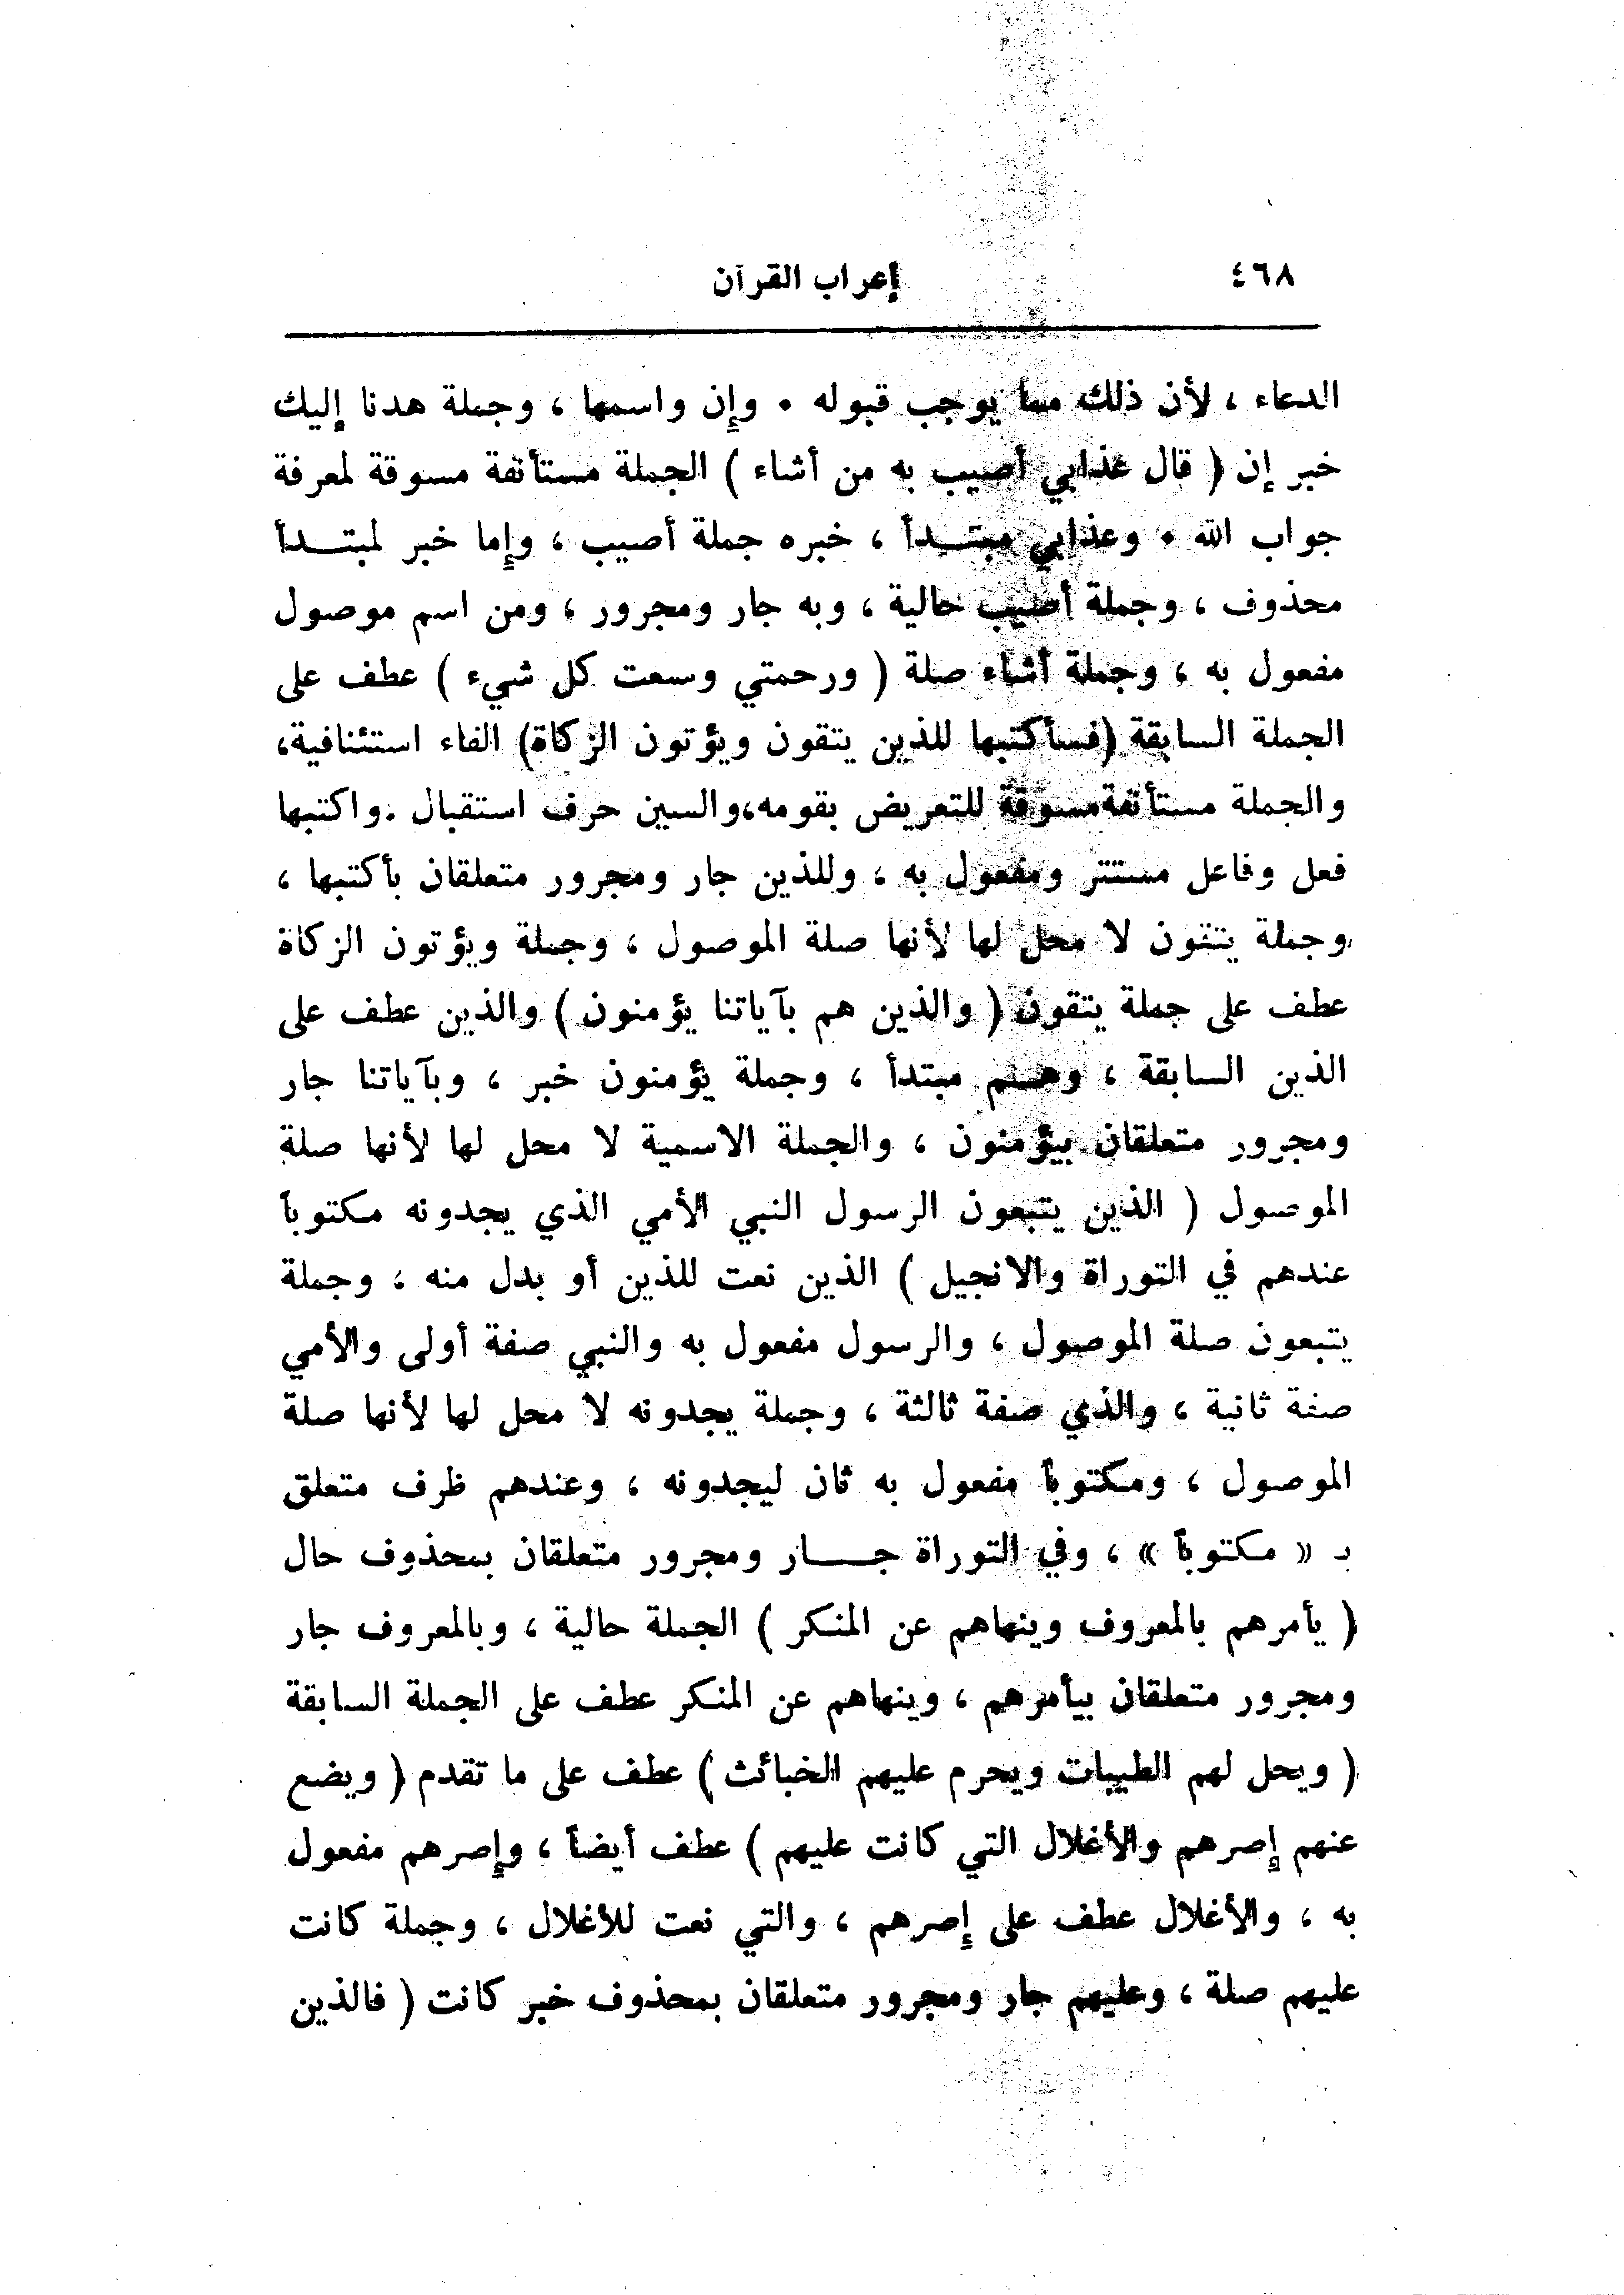 ٤٦٨
إعراب القرآن
الدعاء ، لأن ذلك مما يوجب قبوله . وإن واسمها ، وجملة هدنا إليك
خبر إن ( قال عذابي أصيب به من أشاء ) الجملة مستأنفة مسوقة لمعرفة
جواب الله . وعذابي مبتدأ ، خبره جملة أصيب ، وإما خبر لمبتدأ
محذوف ، وجملة أصيب حالية ، وبه جار ومجرور ، ومن اسم موصول
مفعول به ، وجملة أشاء صلة ( ورحمتي وسعت كل شيء ) عطف على
الجملة السابقة (فسأكتبها للذين يتقون ويؤتون الزكاة) الفاء استئنافية،
والجملة مستأنفة مسوقة للتعريض بقومه،والسين حرف استقبال .واكتبها
فعل وفاعل مستتر ومفعول به ، وللذين جار ومجرور متعلقان بأكتبها ،
وجملة يتقون لا محل لها لأنها صلة الموصول ، وجملة ويؤتون الزكاة
عطف على جملة يتقون ( والذين هم بآياتنا يؤمنون ) والذين عطف على
الذين السابقة ، وهم مبتدأ ، وجملة يؤمنون خبر ، وبآياتنا جار
ومجرور متعلقان بيؤمنون ، والجملة الاسمية لا محل لها لأنها صلة
الموصول ( الذين يتبعون الرسول النبي الأمي الذي يجدونه مكتوباً
عندهم في التوراة والانجيل ) الذين نعت للذين أو بدل منه ، وجملة
يتبعون صلة الموصول ، والرسول مفعول به والنبي صفة أولى والأمي
صفة ثانية ، والذي صفة ثالثة ، وجملة يجدونه لا محل لها لأنها صلة
الموصول ، ومكتوباً مفعول به ثان ليجدونه ، وعندهم ظرف متعلق
بـ « مكتوباً » ، وفي التوراة جار ومجرور متعلقان بمحذوف حال
( يأمرهم بالمعروف وينهاهم عن المنكر ) الجملة حالية ، وبالمعروف جار
ومجرور متعلقان بيأمرهم ، وينهاهم عن المنكر عطف على الجملة السابقة
( ويحل لهم الطيبات ويحرم عليهم الخبائث ) عطف على ما تقدم ( ويضع
عنهم إصرهم والأغلال التي كانت عليهم ) عطف أيضاً ، وإصرهم مفعول
به ، والأغلال عطف على إصرهم ، والتي نعت للأغلال ، وجملة كانت
عليهم صلة ، وعليهم جار ومجرور متعلقان بمحذوف خبر كانت ( فالذين